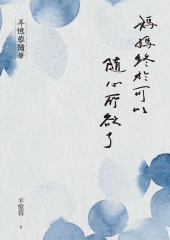 媽媽終於可以
隨心所欲了
羊憶蓉隨筆
羊憶蓉